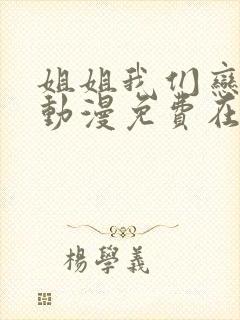 姐姐我们戀
動漫免費在
楊學義